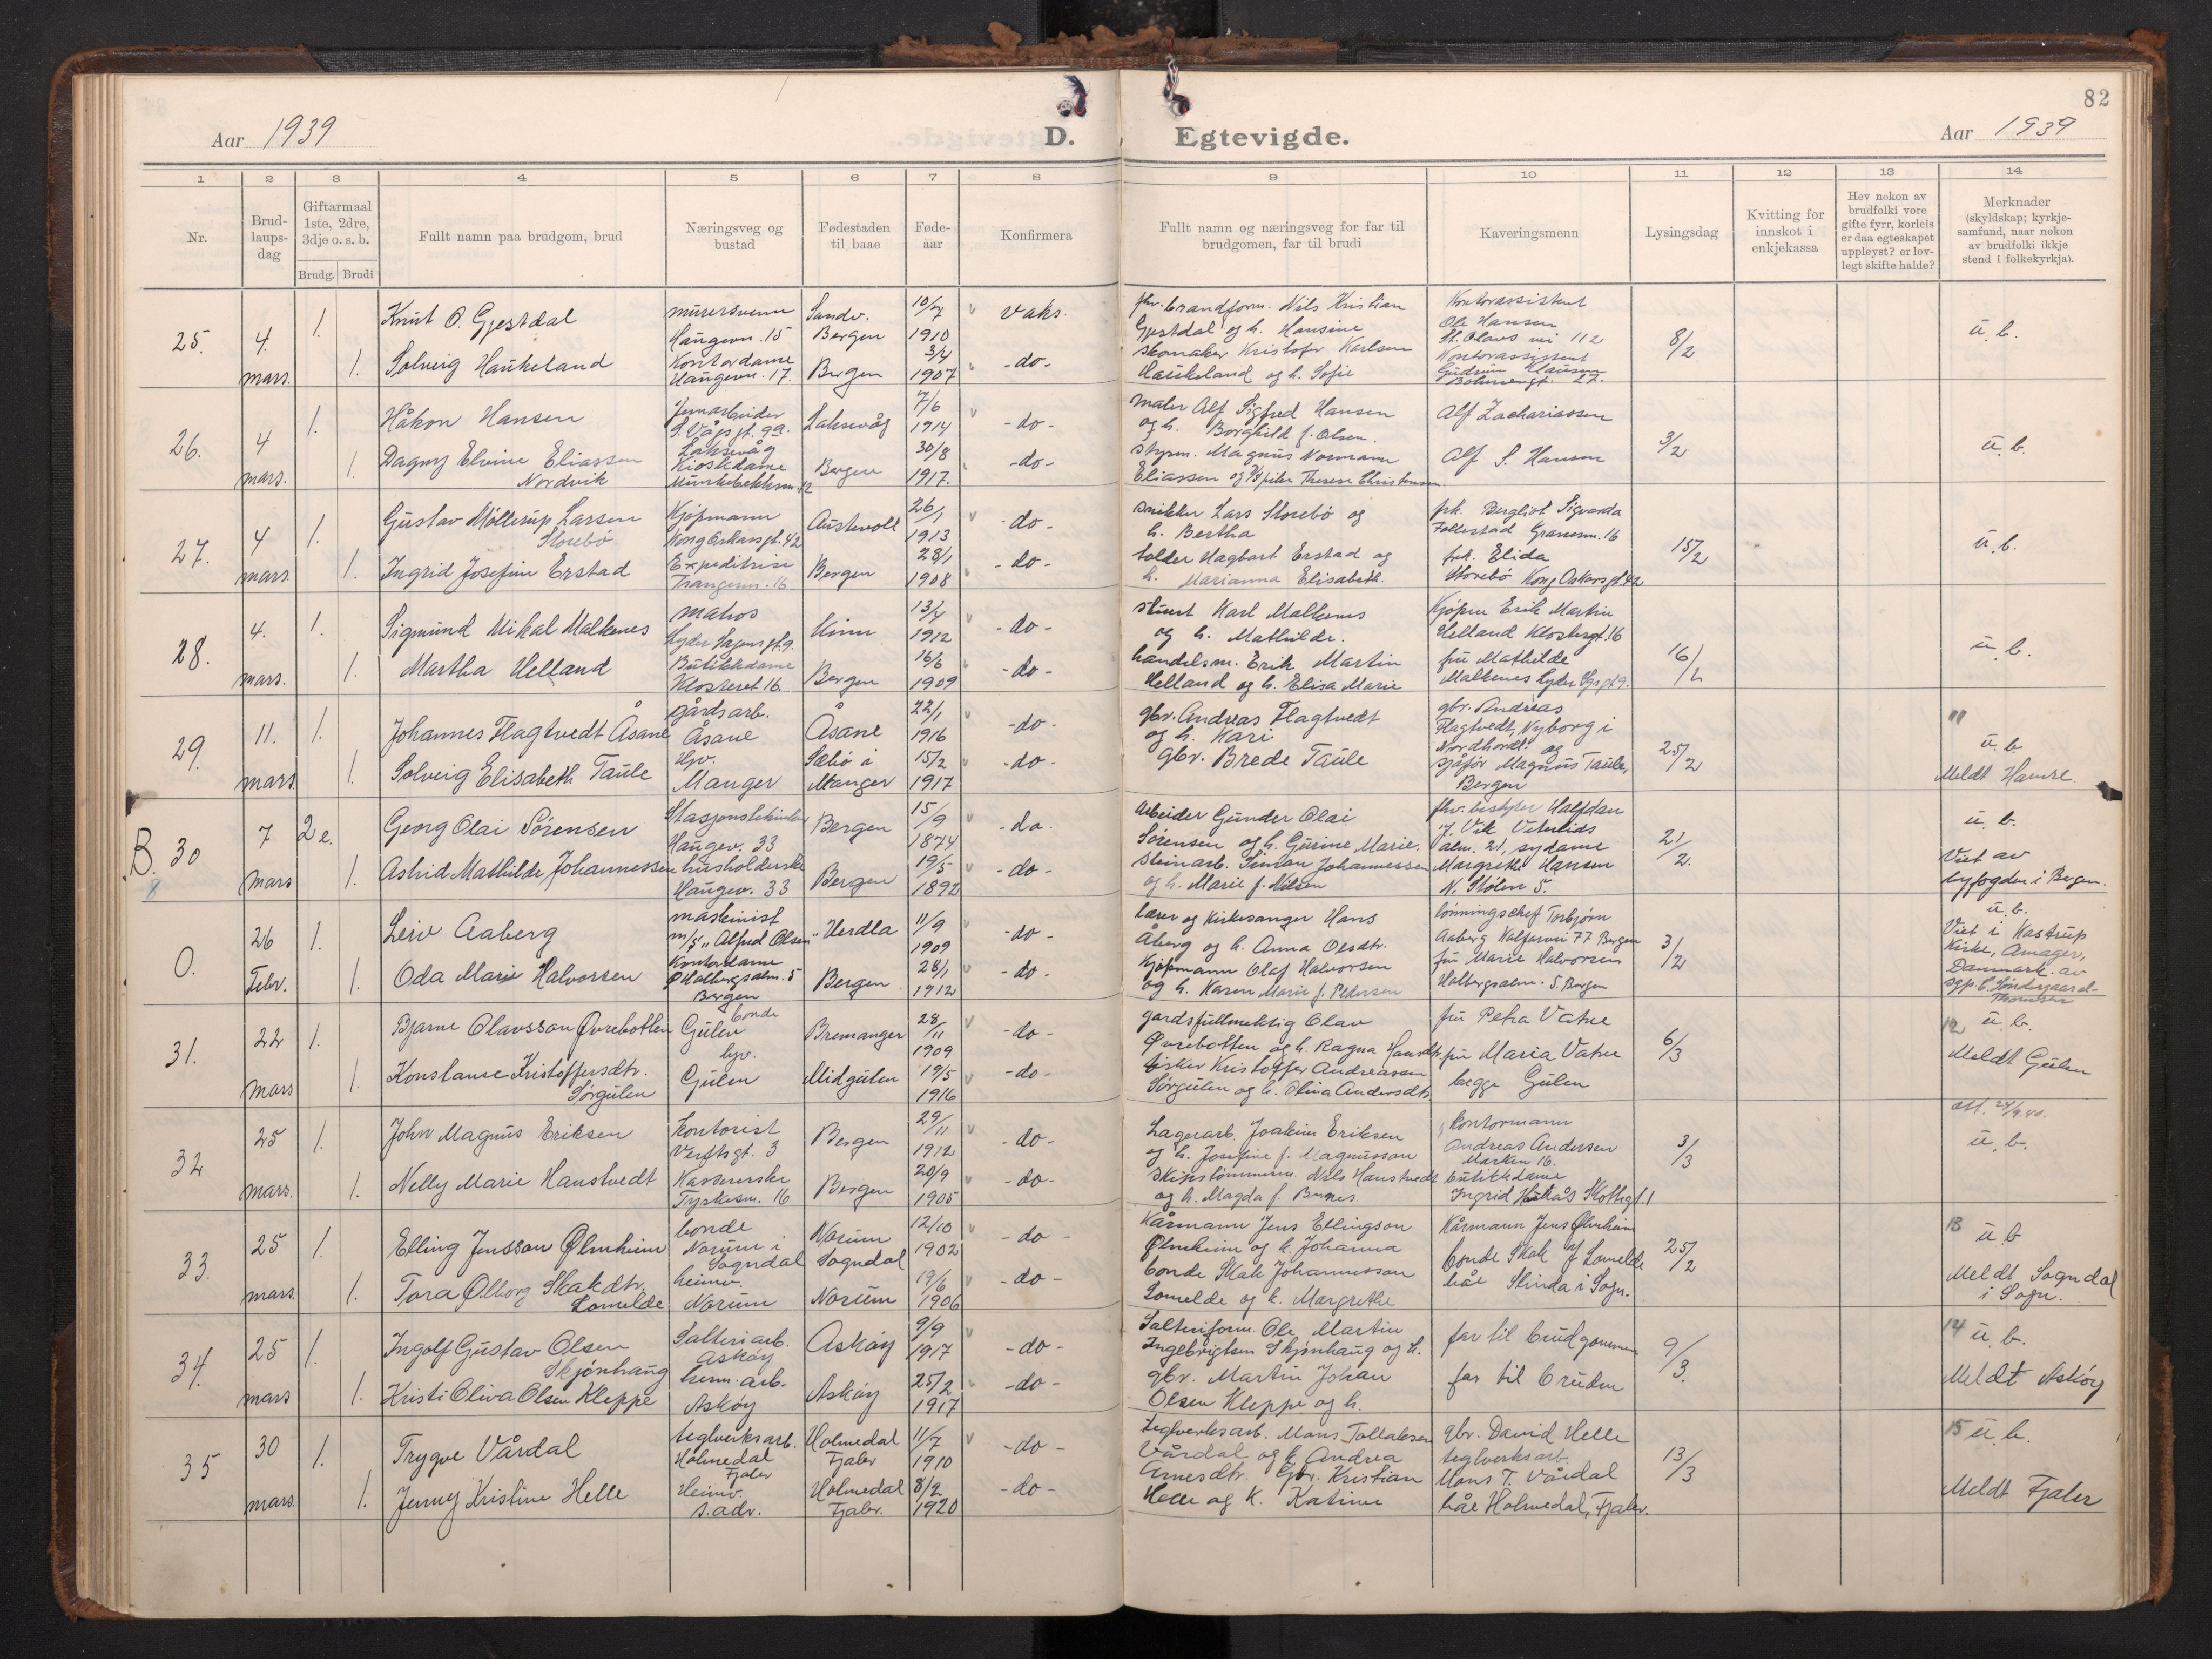 82
Aar 1939
D.
Egtevigde.
Aar 1939
1 2 3 4 5 6 7 8 9 10 11 12 13 14
Nr.
Brud-
laups-
dag
Giftarmaal
1ste, 2dre,
3dje o. s. b.
Brudg. Brudi
Fullt namn paa brudgom, brud
Næringsveg og
bustad
Fødestaden
til baae
Føde-
aar
Konfirmera
Fullt namn og næringsveg for far til
brudgomen, far til brudi
Kaveringsmenn
Lysingsdag
Kvitting for
innskot i
enkjekassa
Hev nokon av
brudfolki vore
gifte fyrr, korleis
er daa egteskapet
uppløyst? er lov-
legt skifte halde?
Merknader
(skyldskap; kyrkje-
samfund, naar nokon
av brudfolki ikkje
stend i folkekyrkja).
25. 4. mars.
1. Knut O. Gjestdal
murersvenn
Haugevn. 15
Sandv. Bergen
10/7 1910
vaks.
fhv. brandform. Nils Kristian
Gjestdal og h. Hansine
Kontorassistent
Ole Hansen
St. Olavs vei 112
8/2
u. b.
1. Solveig Haukeland
Kontordame
Haugevn. 17.
Bergen
3/4 1907
-do-
skomaker Kristofer Karlsen
Haukeland og h. Sofie
Kontorassistent
Gudrun Klausen
27.
26. 4 mars.
1. Håkon Hansen
Jernarbeider
S. Vågsgt. 9a.
Laksevåg
Laksevåg
7/6 1914
-do-
maler Alf Sigfred Hansen
og h. Borghild f. Olsen.
Alf Zachariassen
3/2
u. b.
1. Dagny Elvine Eliassen
Nordvik
Kioskdame
12
Bergen
30/8 1917.
-do-
styrm. Magnus Normann
Eliassen og Therese Christensen
Alf S. Hansen
27. 4 mars.
1. Gustav Møllerup Larsen
Storebø
Kjøpmann
Kong Oskarsgt. 42
Austevoll
26/1 1913
-do-
snikker Lars Storebø og
h. Bertha
frk. Bergliot Sigvarda
Follestad 16
15/2
u. b.
1. Ingrid Josefine Erstad
Expeditrise
16
Bergen
28/1 1908
-do-
toller Hagbart Erstad og
h. Marianna Elisabeth.
frk. Elida
Storebø Kong Oskarsgt. 42
28. 4. mars.
1. Sigmund Mikal Malkenes
matros
Lyder Sagensgt. 9.
Kinn
13/4 1912
-do-
Karl Malkenes
og h. Mathilde.
Kjøpm Erik Martin
Helland Klostergt. 16
16/2
u. b.
1. Martha Helland
Butikkdame
Klosteret 16.
Bergen
16/6 1909
-do-
handelsm. Erik Martin
Helland og h. Elisa Marie
fru Mathilde
Malkenes Lyder Sgsgt 9.
29. 11. mars.
1. Johannes Flagtvedt Åsane
gårdsarb.
Åsane
Åsane
22/1 1916
-do-
gbr. Andreas Flagtvedt
og h. Kari
gbr. Andreas
Flagtvedt, Nyborg i
Nordhordl. og
25/2
11
u. b
1. Solveig Elisabeth Taule
Hjv.
Manger
Sæbø i
Manger
15/2 1917
-do-
gbr. Brede Taule
sjåfør Magnus Taule,
Bergen
Meldt Hamre.
B. 30 7 mars
2 e. Georg Olai Sørensen
Haugev. 33
Bergen
15/9 1874
-do.
Arbeider Gunder Olai
Sørensen og h. Gurine Marie.
fhv. bestyrer Halfdan
J. Vik Veterlids
alm. 21, sydame
21/2.
u. b.
1. Astrid Mathilde Johannessen
husholderske
Haugev. 33
Bergen
19/5 1892
-do-
Steinarb. Simon Johannessen
og h. Marie f. Nilsen
Margrethe Hansen
N. Stølen 5.
Viet av
byfogden i Bergen.
0. 26 Febr.
1. Leiv Aaberg
maskinist
m/s „Alfred Olsen"
Herdla
11/9 1909
-do-
Lærer og Kirkesanger Hans
Åberg og h. Anna Olsdtr.
lønningschef Torbjørn
Aaberg Kalfarvei 77 Bergen
3/2
u. b.
1. Oda Marie Halvorsen
Kontordame
Holbergsalm. 5
Bergen
Bergen
28/1 1912
-do-
Kjøpmann Olaf Halvorsen
og h. Karen Marie f. Pedersen
fru Marie Halvorsen
Holbergsalm. 5. Bergen
Viet i Kastrup
Kirke, Amager,
Danmark. av
sgp. C. Søndergaard-
Thomsen
31. 22 mars
1. Bjarne Olavsson Øvrebotten
bonde
Gulen
Bremanger
28/11 1909
-do-
gardsfullmektig Olav
Øvrebotten og h. Ragna Hansdtr.
fru Petra Vatne
fru Maria Vatne
6/3
12 u. b.
1. Konstanse Kristoffersdtr.
Sørgulen
hjv.
Gulen
Midgulen
19/5 1916
-do-
fisker Kristoffer Andreassen
Sørgulen og h. Stina Andersdtr.
begge Gulen
Meldt Gulen
32 25 mars.
1. John Magnus Eriksen
Kontorist
Verftsgt. 3
Bergen
29/11 1912
-do-
Lagerarb. Joakim Eriksen
og h. Josefine f. Magnusson
kontormann
Andreas Andersen
Marken 16.
3/3
att. 24/9.40.
u. b.
1. Nelly Marie Hanstvedt
Kassererske
Tryskesm. 16
Bergen
20/9 1905
-do-
skipstømmerm. Nils Hanstvedt
og h. Magda f. Bernes.
butikkdame
Ingrid Skottegt. 1
33. 25 mars.
1. Elling Jensson Ølmheim
bonde
Norum i
Sogndal
Norum
Sogndal
12/10 1902
-do-
Kårmann Jens Ellingson
Ølmheim og k. Johanna
Kårmann Jens Ølmheim
25/2
13
u. b
1. Tora Ølborg Skakdtr.
Lomelde
heimv.
Norum
Norum
19/6 1906
-do-
bonde Skak Johannesson
Lomelde og k. Margrethe
bonde Skak J. Lomelde
båe Slinda i Sogn.
Meldt Sogndal
i Sogn.
34. 25 mars
1. Ingolf Gustav Olsen
Skjønhaug
Salteriarb.
Askøy
Askøy
9/9 1917
-do-
Salteriform. Ole Martin
Ingebrigtsen Skjønhaug og h.
far til brudgommen
9/3.
14 u. b.
1. Kristi Oliva Olsen Kleppe
herm. arb.
Askøy
Askøy
25/2 1917
-do-
gbr. Martin Johan
Olsen Kleppe og h.
far til bruden
Meldt Askøy
35 30 mars.
1. Trygve Vårdal
teglverksarb.
Holmedal
Fjaler
Holmedal
Fjaler
11/7 1910
-do-
teglverksarb. Mons Tollaksen
Vårdal og k Andrea
Arnesdtr.
gbr. David Helle
teglverksarb.
13/3
15 u. b.
1. Jenny Kristine Helle
Heimv.
s. adr.
Holmedal
Fjaler.
8/2 1920
-do-
Gbr. Kristian
Helle og k. Katinne
Mons T. Vårdal
båe Holmedal, Fjaler.
Meldt Fjaler